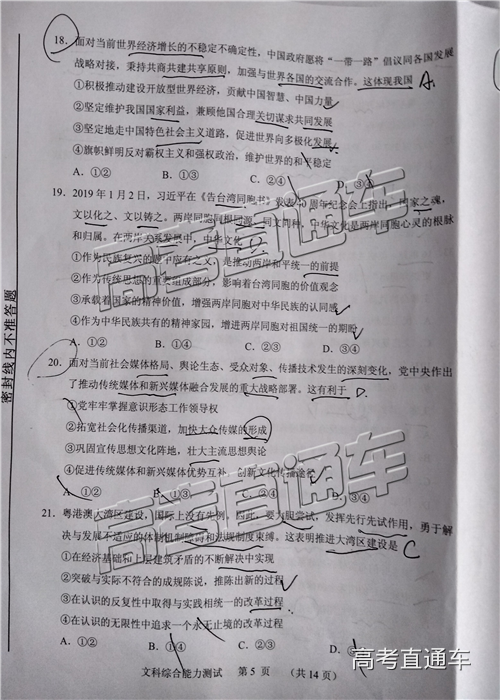 18. 面对当前世界经济增长的不稳定不确定性，中国政府愿将“一带一路”倡议同各国发展
战略对接，秉持共商共建共享原则，加强与世界各国的交流合作。这体现我国 A.
①积极推动建设开放型世界经济，贡献中国智慧、中国力量
②坚定维护我国国家利益，兼顾他国合理关切谋求共同发展
③坚定地走中国特色社会主义道路，促进世界向多极化发展
④旗帜鲜明反对霸权主义和强权政治，维护世界的和平稳定
A. ①② B. ①③ C. ②④ D. ③④
19. 2019年1月2日，习近平在《告台湾同胞书》发表 周年纪念会上指出，国家之魂，
文以化之、文以铸之。两岸同胞同根同源、同文同种，中华文化是两岸同胞心灵的根脉
和归属。在两岸关系发展中，中华文化
①作为民族复兴的题中应有之义，是推动两岸和平统一的前提
②作为传统思想的重要组成部分，影响着台湾同胞的价值观念
③承载着国家的精神价值，增强两岸同胞对民族的认同感
④作为中华民族共有的精神家园，增进两岸同胞对祖国统一的期盼
A. ①② B. ①③ C. ②④ D. ③④
20. 面对当前社会媒体格局、舆论生态、受众对象、传播技术发生的深刻变化，党中央作出
了推动传统媒体和新兴媒体融合发展的重大战略部署。这有利于 D.
①党牢牢掌握意识形态工作领导权
②拓宽社会化传播渠道，加快大众传媒的形成
③巩固宣传思想文化阵地，壮大主流思想舆论
④促进传统媒体和新兴媒体优势互补，创新文化传播途径
A. ①② B. ①③ C. ②④ D. ③④
21. 粤港澳大湾区建设，国际上没有先例，因此，要大胆尝试，发挥先行先试作用，勇于解
决与发展不适应的体制机制障碍和法规制度束缚。这表明推进大湾区建设是 C
①在经济基础和上层建筑矛盾的不断解决中实现
②突破与实际不符合的成规陈说，推陈出新的过程
③在认识的反复性中取得与实践相统一的改革过程
④在认识的无限性中追求一个永无止境的改革过程
A. ①② B. ①③ C. ②④ D.
文科综合能力测试 第5页 （共14页）
密封线内不准答题
高考直通车
高考直通车
高考直通车
高考直通车